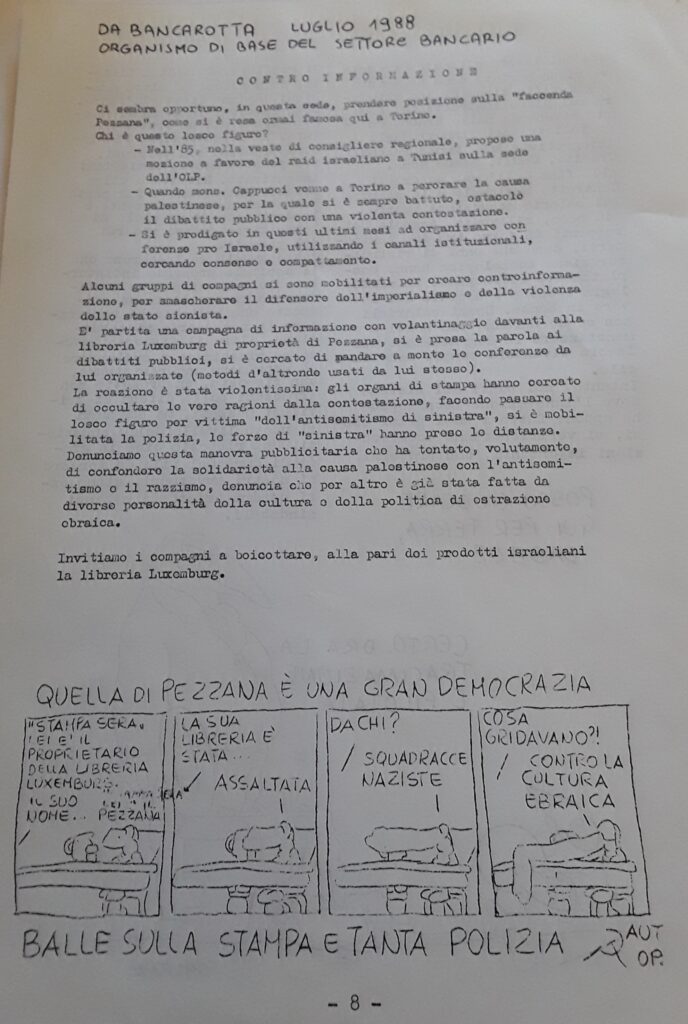 DA BANCAROTTA LUGLIO 1988
ORGANISMO DI BASE DEL SETTORE BANCARIO
CONTRO INFORMAZIONE
Ci sembra opportuno, in questa sede, prendere posizione sulla "faccenda
Pezzana", come si è resa ormai famosa qui a Torino.
Chi è questo losco figuro?
- Nell'85, nella veste di consigliere regionale, propose una
mozione a favore del raid israeliano a Tunisi sulla sede
dell'OLP.
- Quando mons. Cappucci venne a Torino a perorare la causa
palestinese, per la quale si è sempre battuto, ostacolò
il dibattito pubblico con una violenta contestazione.
- Si è prodigato in questi ultimi mesi ad organizzare con
ferenze pro Israele, utilizzando i canali istituzionali,
cercando consenso e compattamento.
Alcuni gruppi di compagni si sono mobilitati per creare controinforma-
zione, per smascherare il difensore dell'imperialismo e della violenza
dello stato sionista.
E' partita una campagna di informazione con volantinaggio davanti alla
libreria Luxemburg di proprietà di Pezzana, si è presa la parola ai
dibattiti pubblici, si è cercato di mandare a monte le conferenze da
lui organizzate (metodi d'altronde usati da lui stesso).
La reazione è stata violentissima: gli organi di stampa hanno cercato
di occultare le vere ragioni dalla contestazione, facendo passare il
losco figuro per vittima "dell'antisemitismo di sinistra", si è mobi-
litata la polizia, le forze di "sinistra" hanno preso le distanze.
Denunciamo questa manovra pubblicitaria che ha tentato, volutamente,
di confondere la solidarietà alla causa palestinese con l'antisemi-
tismo e il razzismo, denuncia che per altro è già stata fatta da
diverse personalità della cultura e della politica di estrazione
ebraica.
Invitiamo i compagni a boicottare, alla pari dei prodotti israeliani
la libreria Luxemburg.
QUELLA DI PEZZANA È UNA GRAN DEMOCRAZIA
"STAMPA SERA"
LEI E' IL
PROPRIETARIO
DELLA LIBRERIA
LUXEMBURG.
IL SUO
NOME... PEZZANA
LA SUA
LIBRERIA È
STATA...
ASSALTATA
DA CHI?
SQUADRACCE
NAZISTE
COSA
GRIDAVANO?!
CONTRO LA
CULTURA
EBRAICA
BALLE SULLA STAMPA E TANTA POLIZIA
AUT
OP.
- 8 -